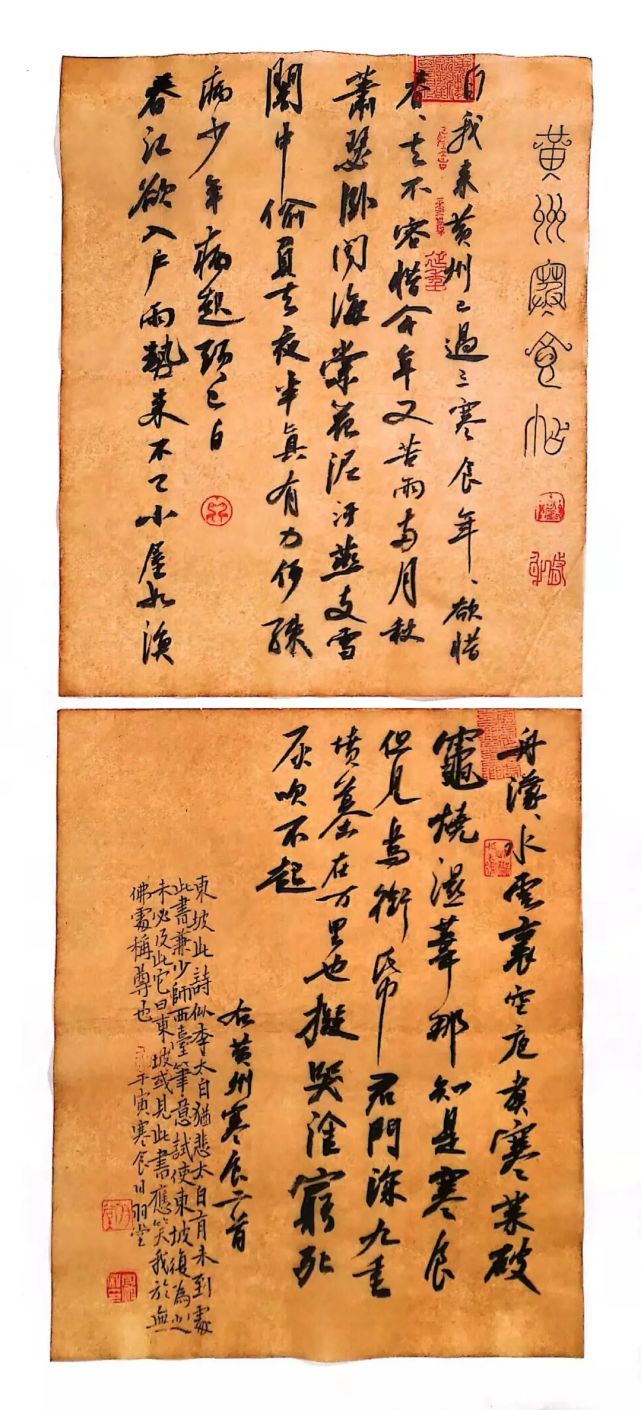 黄州寒食帖
自我来黄州已過三寒食年、欲惜
春、去不容惜今年又苦雨两月秋
蕭瑟卧闻海棠花泥汙燕支雪
闇中偷負去夜半真有力何殊
病少年病起頭已白
春江欲入户雨勢来不已小屋如漁
舟濛、水雲裏空庖煮寒菜破
竈燒濕葦那知是寒食
但見烏銜帋君門深九重
墳墓在万里也擬哭塗窮死
灰吹不起
右黄州寒食二首
東坡此詩似李太白猶恐太白有未到處
此書兼少師西臺筆意試使東坡復為之
未必及此它日東坡或見此書應笑我於無
佛處稱尊也 壬寅寒食日羽堂